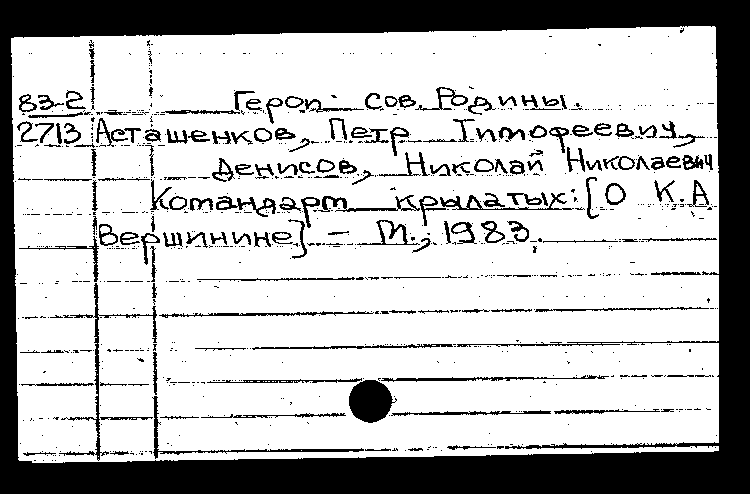 83-2 Герои сов. Родины.
2713 Асташенков, Петр Тимофеевич,
Денисов, Николай Николаевич
Командарм крылатых: [О К.А
Вершинине] - М., 1983.